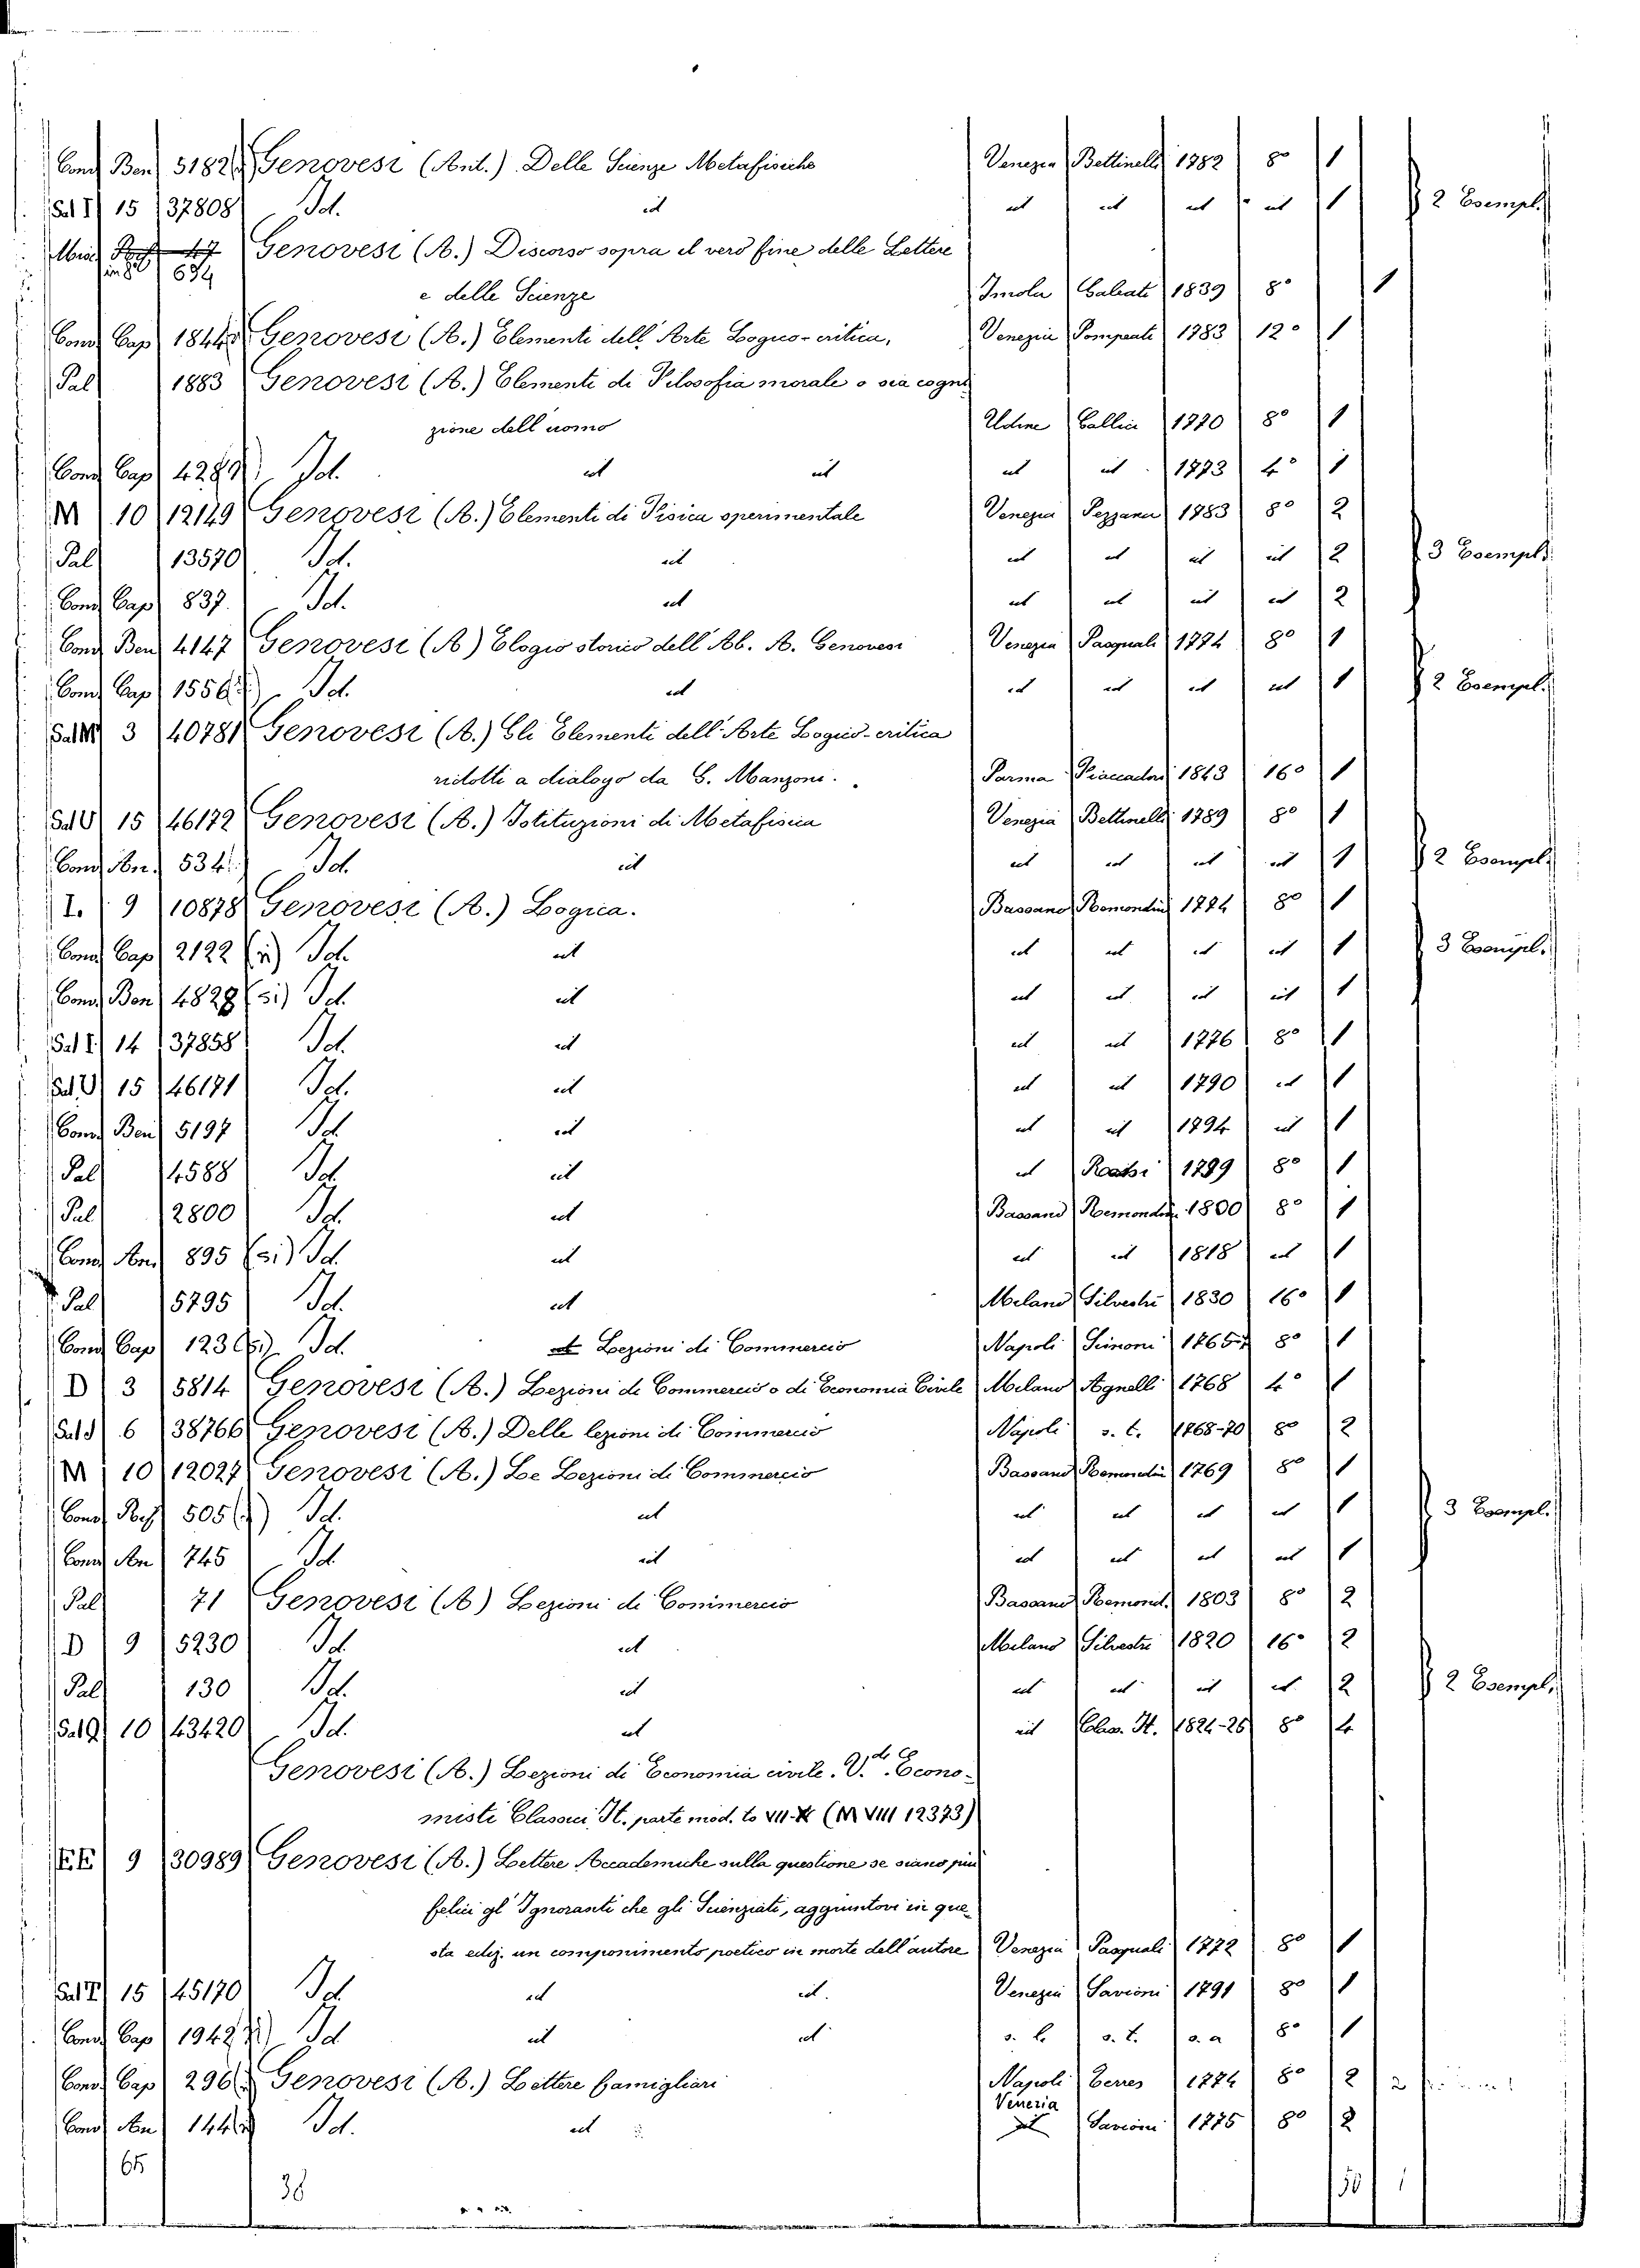 Cons Ben 5182 Genovesi (Ant.) Delle Scienze Metafisiche Venezia Bettinelli 1782 8° 1
Sal I 15 37808 Id. id id id id id 1 2 Esempl.
Misc 47 Genovesi (A.) Discorso sopra il vero fine delle Lettere
in 8° 694
e delle Scienze Imola Galeati 1839 8° 1
Cons Cap 1844 Genovesi (A.) Elementi dell'Arte Logico-critica, Venezia Pompeati 1783 12° 1
Pal 1883 Genovesi (A.) Elementi di Filosofia morale o sia cogni
zione dell'uomo Udine Gallici 1770 8° 1
Cons Cap 4289 Id. id id id id 1773 4° 1
M 10 12149 Genovesi (A.) Elementi di Fisica sperimentale Venezia Pezzana 1783 8° 2
Pal 13570 Id. id id id id id 2 3 Esempl.
Cons Cap 837 Id. id id id id id 2
Cons Ben 4147 Genovesi (A) Elogio storico dell'Ab. A. Genovesi Venezia Pasquali 1774 8° 1
Cons Cap 1556 Id. id id id id id 1 2 Esempl.
Sal M 3 40781 Genovesi (A.) Gli Elementi dell'Arte Logico-critica
ridotti a dialogo da G. Manzoni. Parma Fiaccadori 1843 16° 1
Sal U 15 46172 Genovesi (A.) Istituzioni di Metafisica Venezia Bettinelli 1789 8° 1
Cons An. 534 Id. id id id id id 1 2 Esempl.
I. 9 10878 Genovesi (A.) Logica. Bassano Remondini 1774 8° 1
Cons Cap 2122 Id. id id id id id 1 3 Esempl.
Cons Ben 4828 Id. id id id id id 1
Sal I 14 37858 Id. id id id 1776 8° 1
Sal U 15 46171 Id. id id id 1790 id 1
Cons Ben 5197 Id. id id id 1794 id 1
Pal 4588 Id. id id 1799 8° 1
Pal 2800 Id. id Bassano Remondini 1800 8° 1
Cons An. 895 Id. id id id 1818 id 1
Pal 5795 Id. id Milano Silvestri 1830 16° 1
Cons Cap 1236 Id. Lezioni di Commercio Napoli Simoni 1765 8° 1
D 3 5814 Genovesi (A.) Lezioni di Commercio o di Economia Civile Milano Agnelli 1768 4° 1
Sal 6 38766 Genovesi (A.) Delle lezioni di Commercio Napoli s. t. 1768-70 8° 2
M 10 12027 Genovesi (A.) Le Lezioni di Commercio Bassano Remondini 1769 8° 1
Cons 505 Id. id id id id id 1 3 Esempl.
Cons An 745 Id. id id id id id 1
Pal 71 Genovesi (A) Lezioni di Commercio Bassano Remond. 1803 8° 2
D 9 5230 Id. id Milano Silvestri 1820 16° 2
Pal 130 Id. id id id id id 2 2 Esempl.
Sal Q 10 43420 Id. id id Class. It. 1824-25 8° 4
Genovesi (A.) Lezioni di Economia civile. V. Econo-
misti Classici It. parte mod. to VII-X (M VIII 12373)
EE 9 30989 Genovesi (A.) Lettere Accademiche sulla questione se siano più
felici gl'Ignoranti che gli Scienziati, aggiuntovi in que
sta ediz. un componimento poetico in morte dell'autore Venezia Pasquali 1772 8° 1
Sal T 15 45170 Id. id id. Venezia Savioni 1791 8° 1
Cons Cap 1942 Id id id s. l. s. t. s. a 8° 1
Cons Cap 296 Genovesi (A.) Lettere famigliari Napoli Terres 1774 8° 2
Cons An 144 Id. id Venezia Savioni 1775 8° 2
65
38 50 1